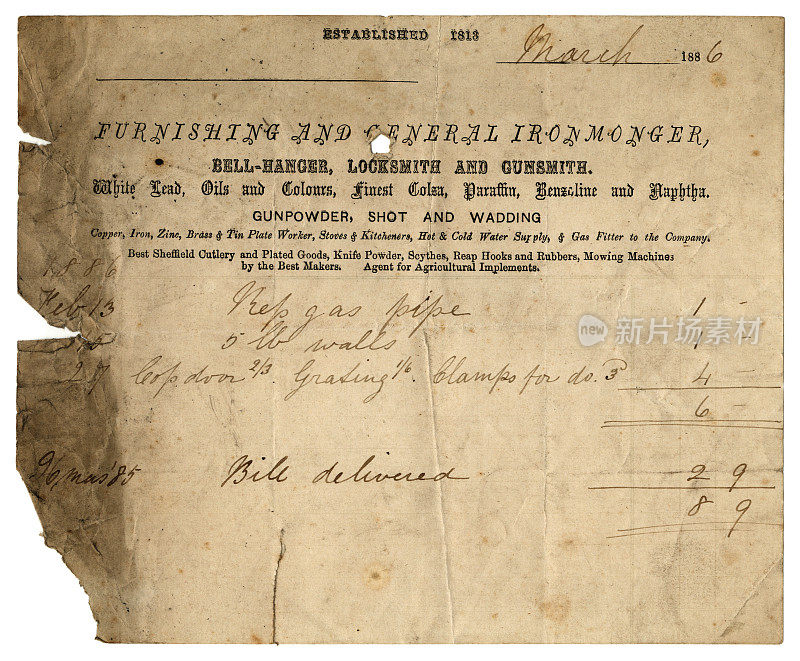 ESTABLISHED 1813
March 1886
FURNISHING AND GENERAL IRONMONGER,
BELL-HANGER, LOCKSMITH AND GUNSMITH.
White Lead, Oils and Colours, Finest Colza, Paraffin, Benzoline and Naphtha.
GUNPOWDER, SHOT AND WADDING
Copper, Iron, Zinc, Brass & Tin Plate Worker, Stoves & Kitcheners, Hot & Cold Water Supply, & Gas Fitter to the Company.
Best Sheffield Cutlery and Plated Goods, Knife Powder, Scythes, Reap Hooks and Rubbers, Mowing Machines
by the Best Makers. Agent for Agricultural Implements.
1886
Feb 13 Rep gas pipe 1 -
5 lb walls 1 -
27 Cop door 2/3. Grating 1/6. Clamps for do. 3d 4 -
6 -
Xmas '85 Bill delivered 2 9
8 9
new 新片场素材